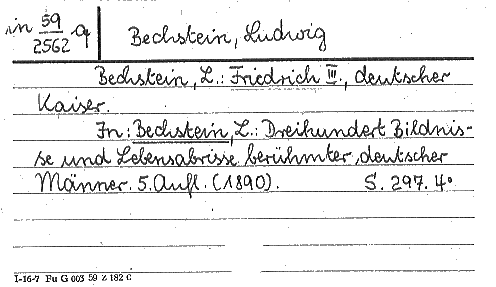 in 59/2562 q Bechstein, Ludwig
Bechstein, L.: Friedrich III., deutscher
Kaiser.
In: Bechstein, L.: Dreihundert Bildnis-
se und Lebensabrisse berühmter, deutscher
Männer. 5. Aufl. (1890). S. 297. 4°
I-16-7 Fu G 003 59 Z 182 C